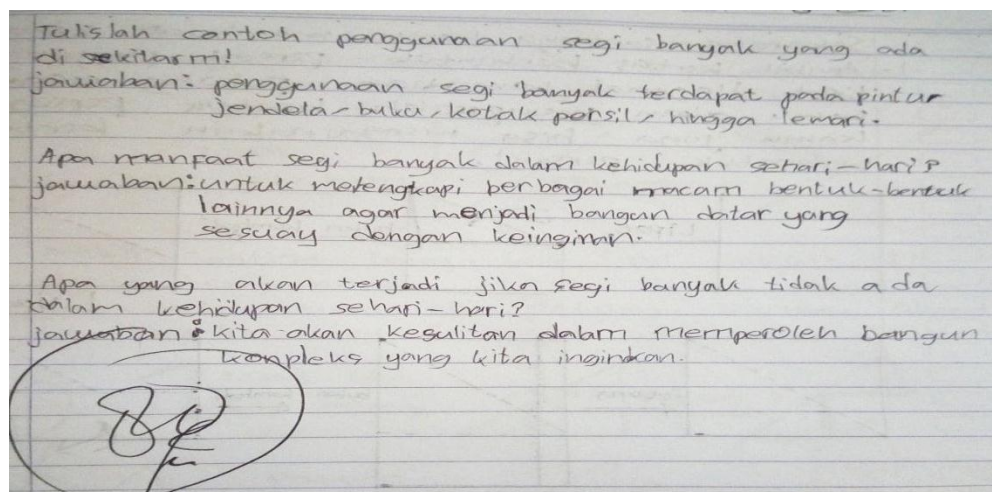 Tulislah contoh penggunaan segi banyak yang ada
di sekitarmi!
jawaban: penggunaan segi banyak terdapat pada pintu,
jendela, buku, kotak pensil, hingga lemari.
Apa manfaat segi banyak dalam kehidupan sehari-hari?
jawaban: untuk melengkapi berbagai macam bentuk-bentuk
lainnya agar menjadi bangun datar yang
sesuay dengan keinginan.
Apa yang akan terjadi jika segi banyak tidak ada
dalam kehidupan sehari-hari?
jawaban: kita akan kesulitan dalam memperoleh bangun
konpleks yang kita inginkan.